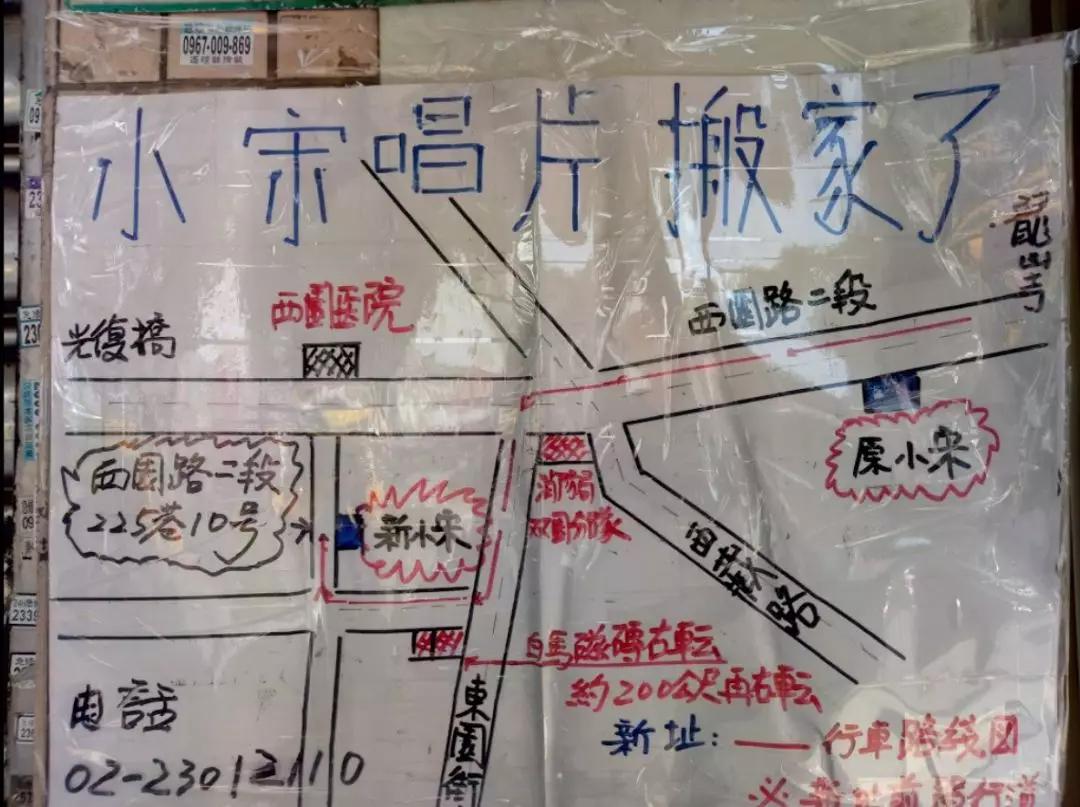 0967-009-869
小宋唱片搬家了
龍山寺
西園医院
西园路二段
光復橋
原小宋
西园路二段
225巷10号
新小宋
消防局
双园分隊
白馬磁磚右転
約200公尺再右転
東園街
新址：
行車路线図
电話
02-23012110